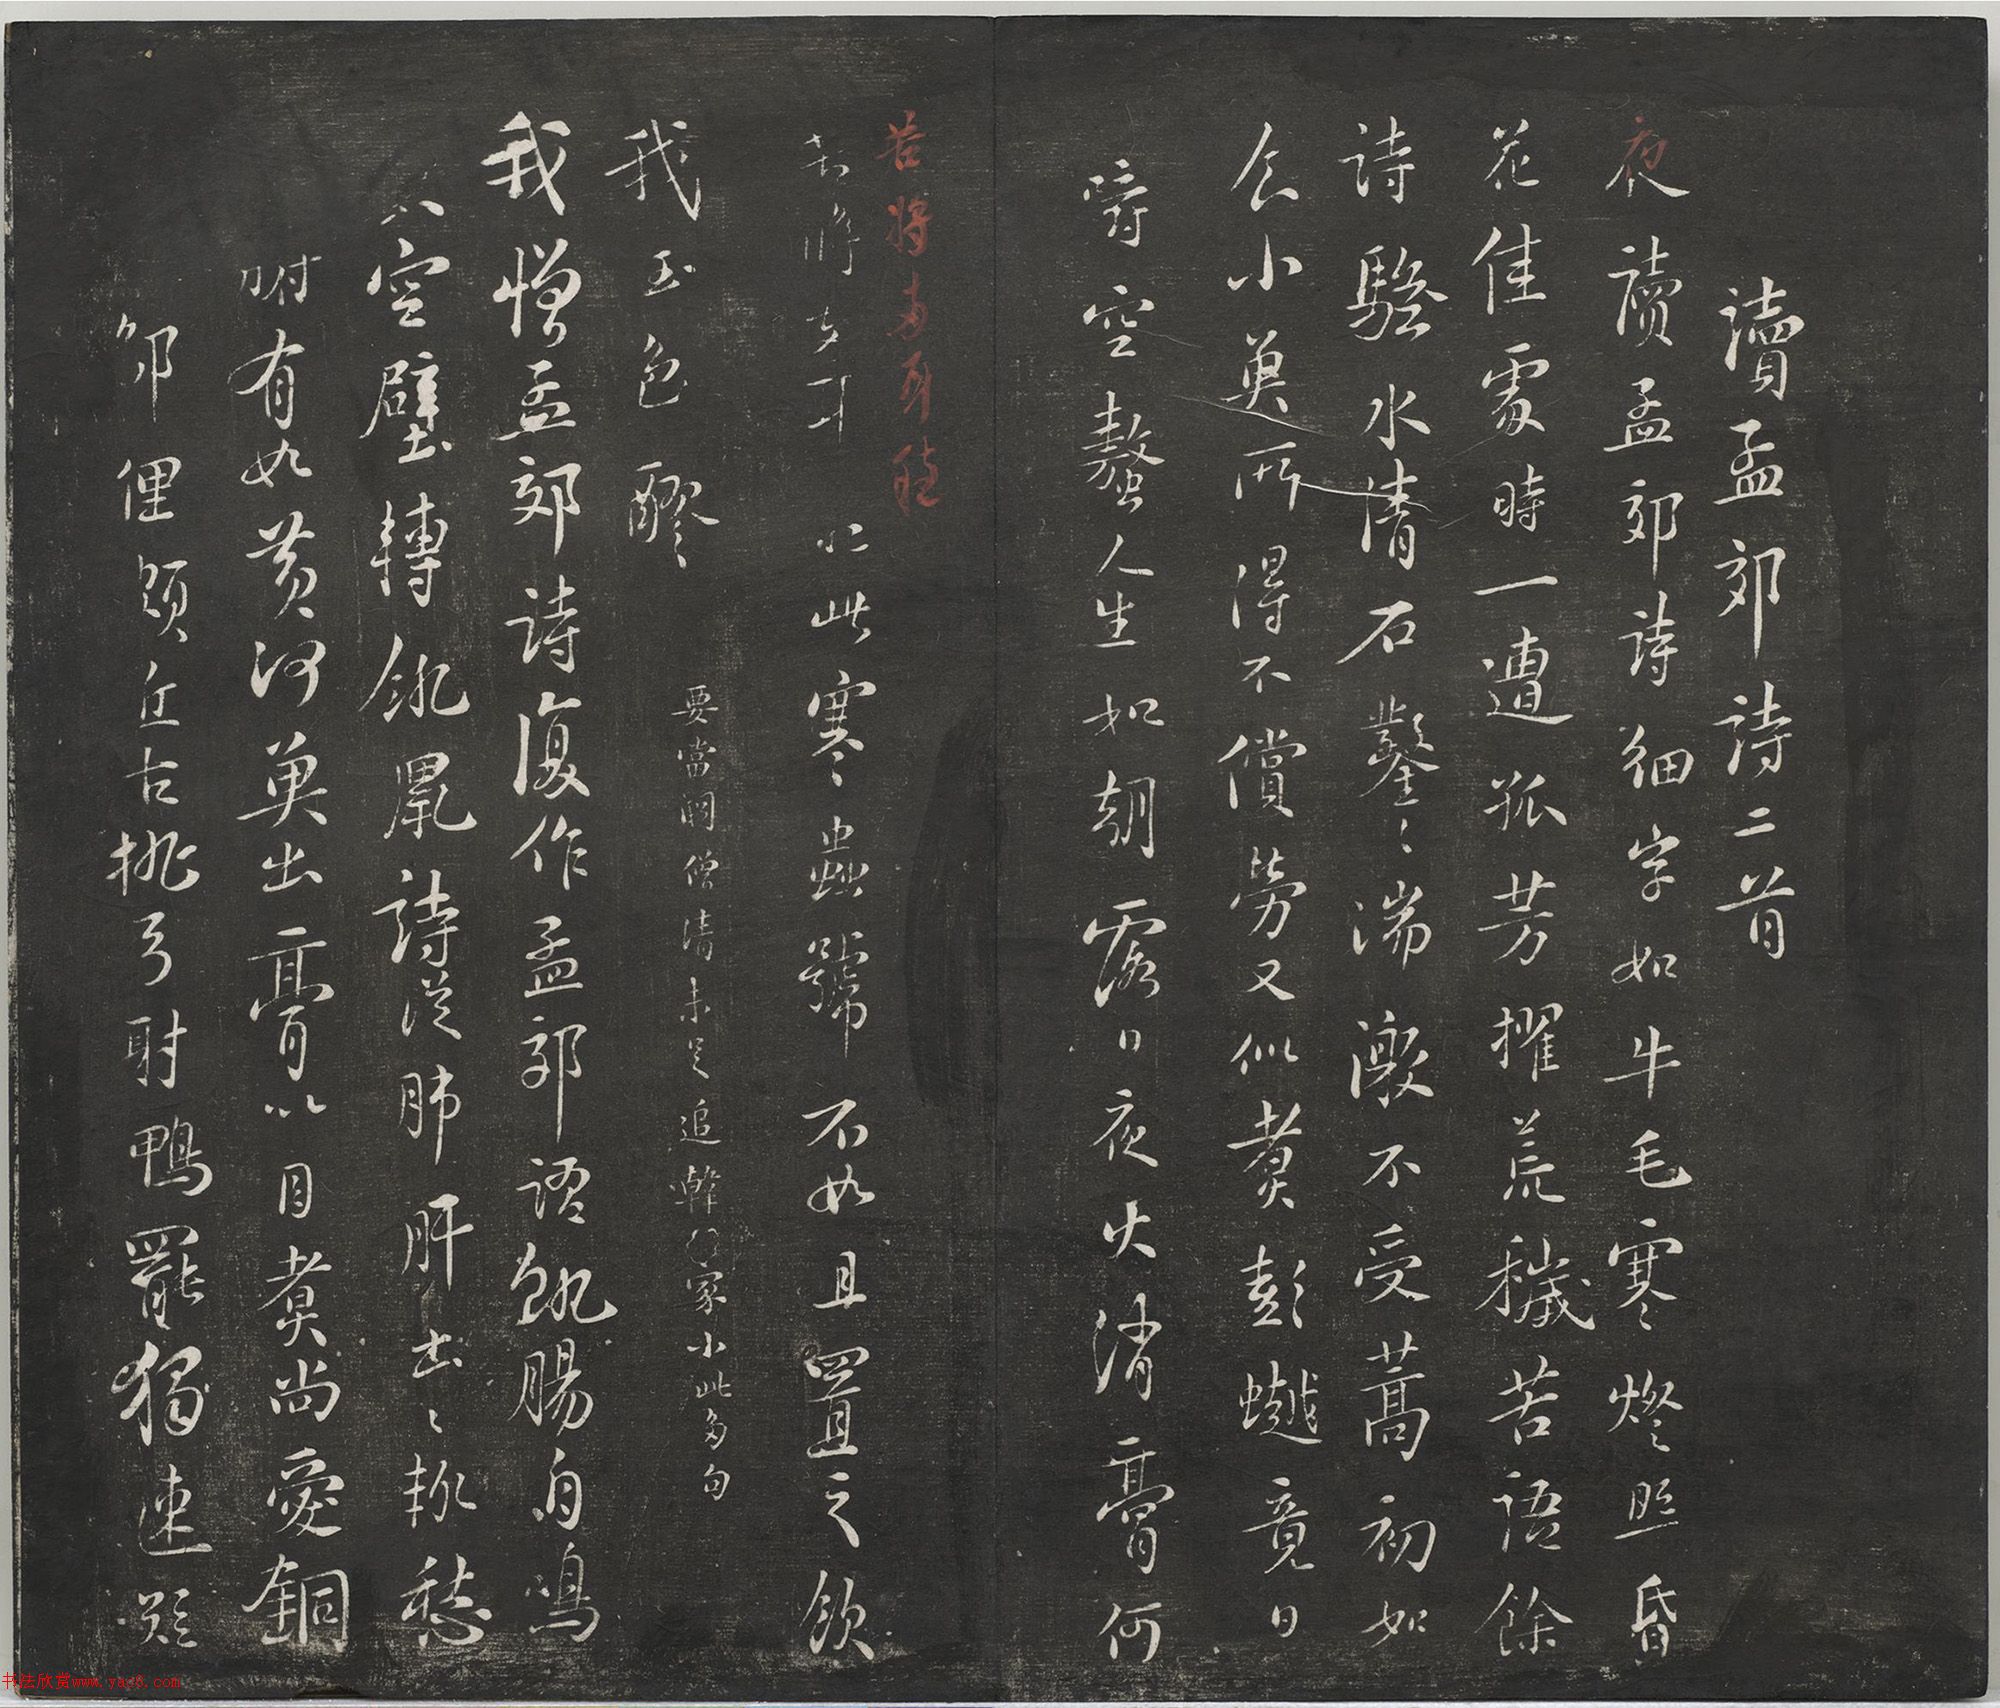 讀孟郊詩二首
夜讀孟郊詩細字如牛毛寒燈照昏
花佳處時一遭孤芳擢荒穢苦語餘
詩騷水清石鑿〻湍激不受篙初如
食小魚所得不償勞又似煮彭竟日
嚼空螯人生如朝露日夜火消膏何
苦將兩耳聽
苦將兩耳聽此寒蟲號不如且置之飲
我玉色醪
要當鬥僧清未足追韓豪少此兩句
我憎孟郊詩復作孟郊語飢腸自鳴
喚空壁轉飢鼠詩從肺肝出〻輒愁
腑有如黃河魚出膏以自煮尚愛銅
鄙俚頗近古桃弓射鴨罷獨速短
书法欣赏www.yac8.com